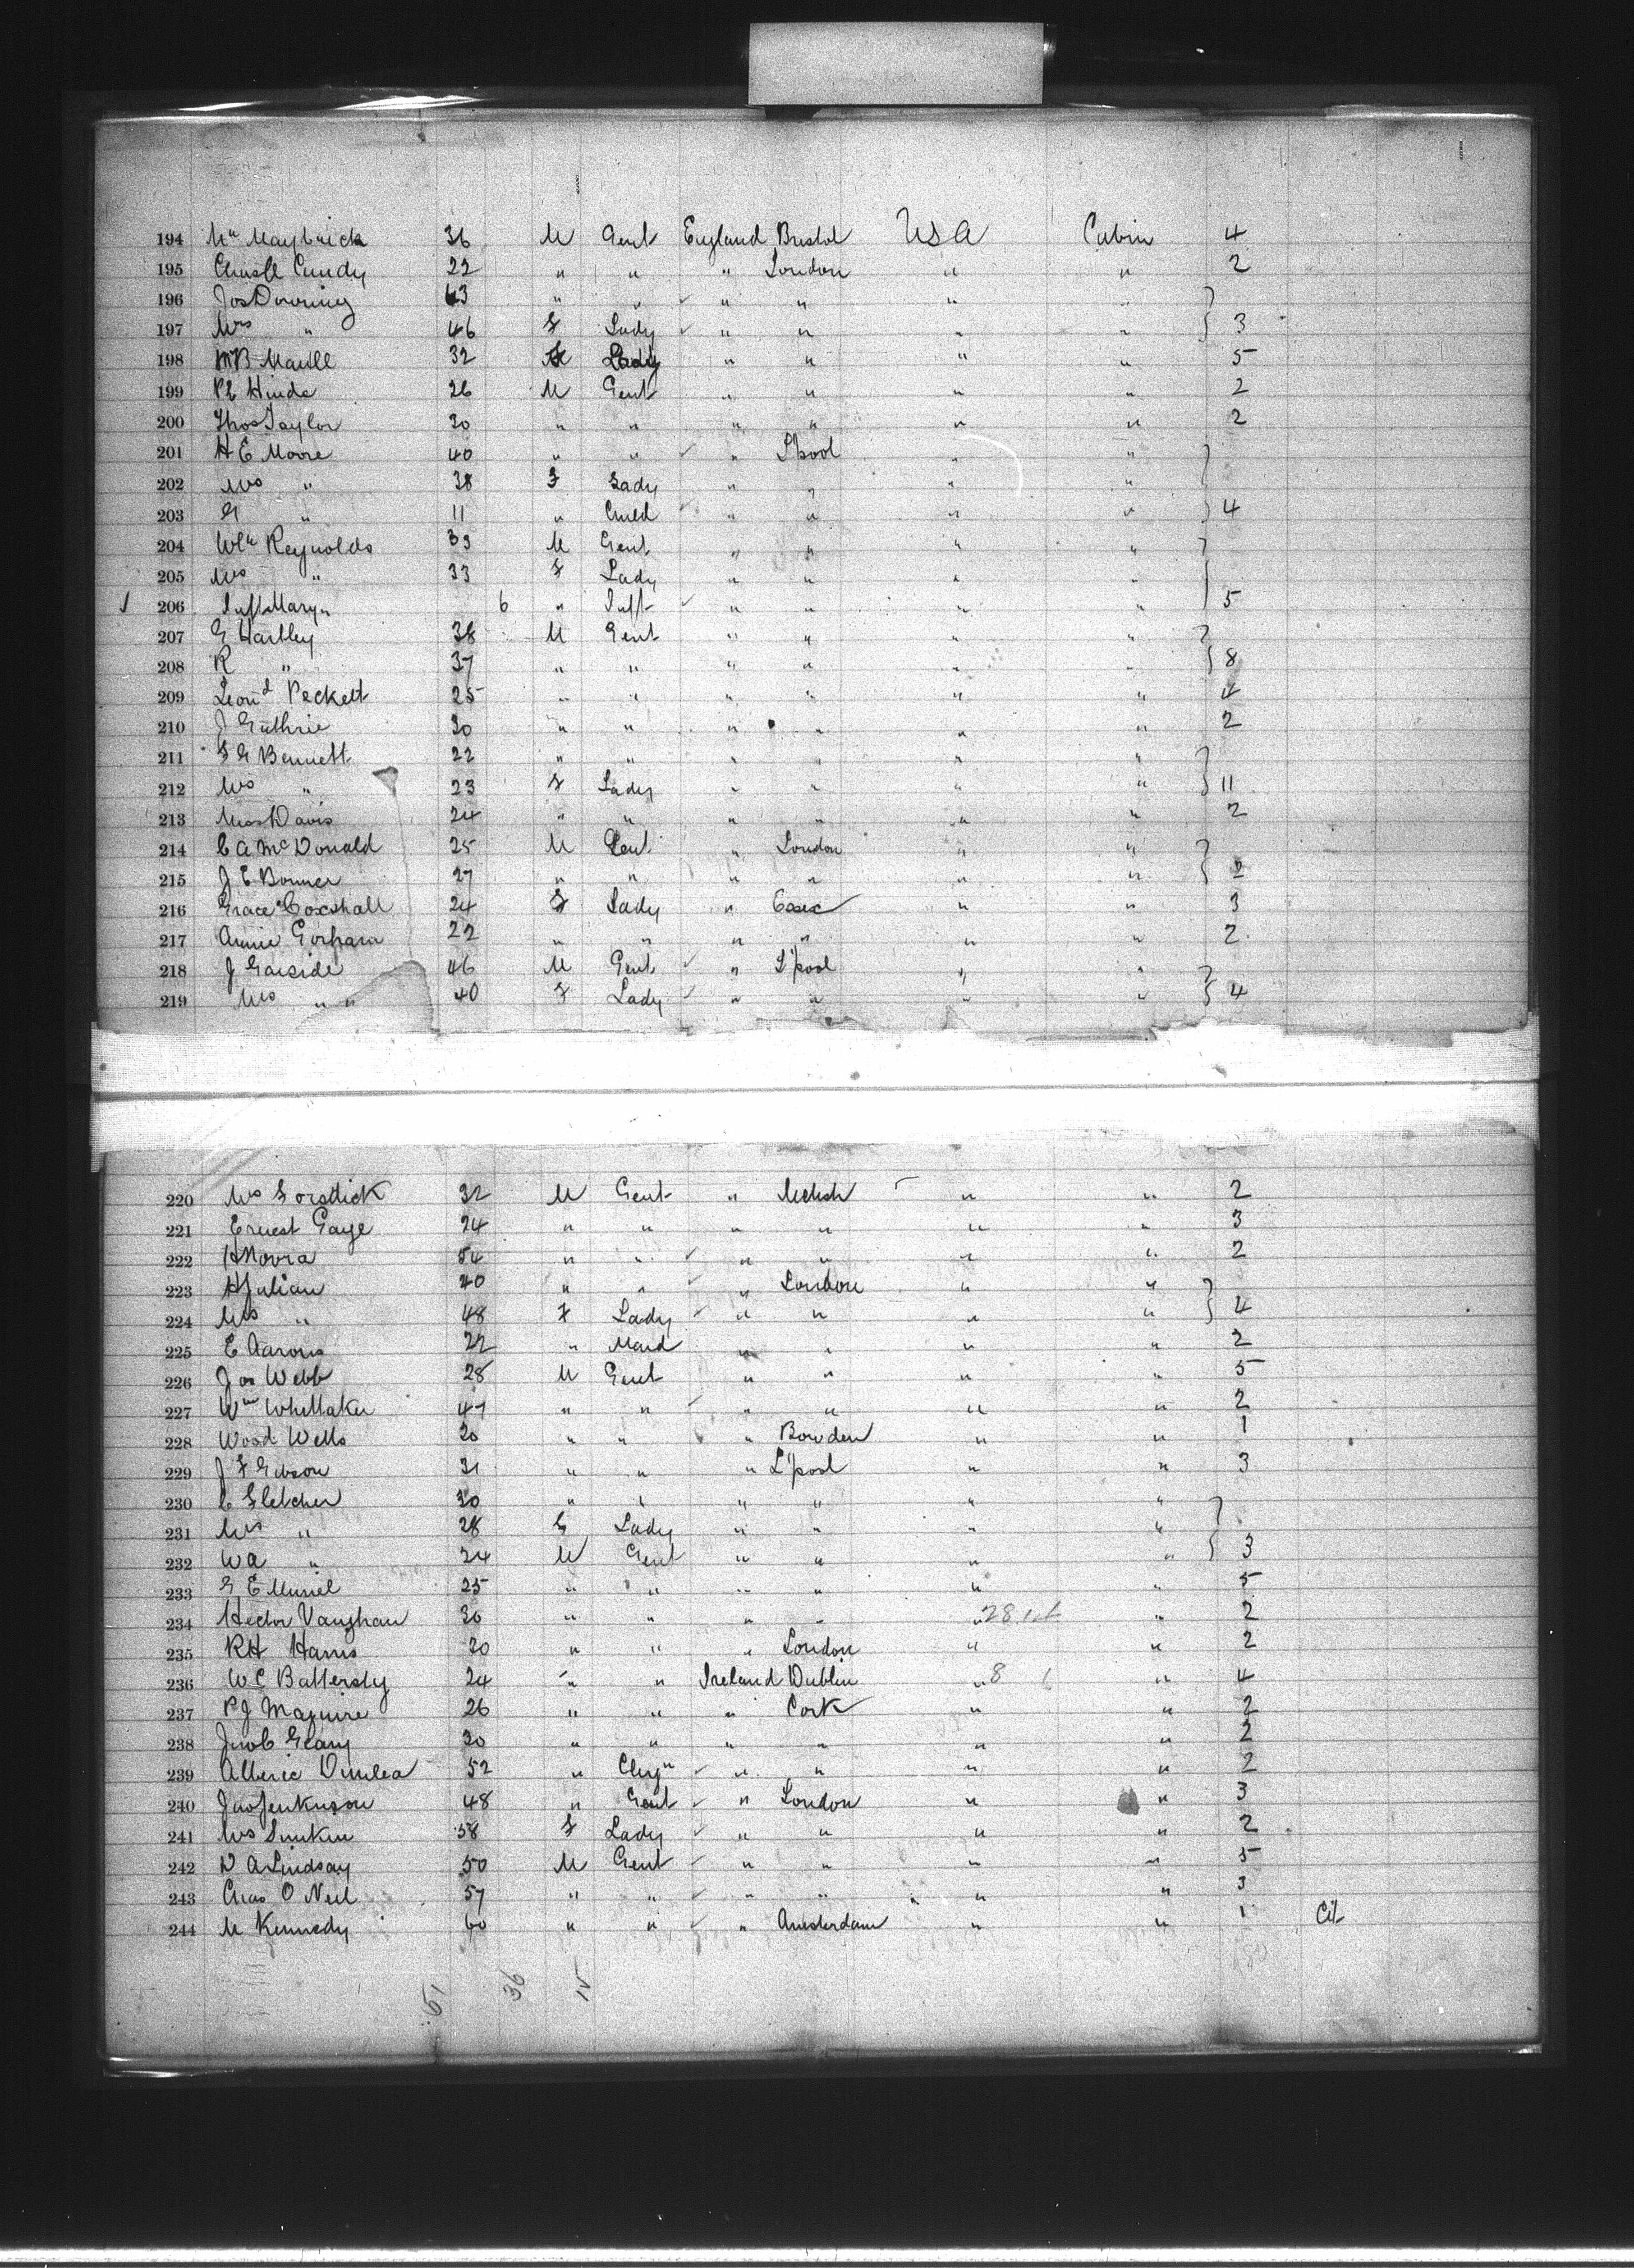 194 Mr Maybrick 36 M Gent England Bristol USA Cabin 4
195 Chas H Cundy 22 " " " London " " 2
196 Jos Downing 43 " " " " " "
197 Mrs " 46 F Lady " " " " 3
198 MB Maull 32 F Lady " " " " 5
199 Hinde 26 M Gent " " " " 2
200 Thos Taylor 30 " " " " " " 2
201 H E Moore 40 " " " L'pool " "
202 Mrs " 38 F Lady " " " "
203 G " 11 " Child " " " " 4
204 Wm Reynolds 33 M Gent " " " "
205 Mrs " 33 F Lady " " " "
206 Inft Mary " 6 " Inft " " " " 5
207 G Hartley 38 M Gent " " " "
208 R " 37 " " " " " " 8
209 Leond Peckett 25 " " " " " " 4
210 J Guthrie 30 " " " " " " 2
211 F G Bennett 22 " " " " " "
212 Mrs " 23 F Lady " " " " 11
213 Miss Davis 24 " " " " " " 2
214 C A McDonald 25 M Gent " London " "
215 J E Bonner 27 " " " " " " 2
216 Grace Coxshall 24 F Lady " Essex " " 3
217 Annie Gorham 22 " " " " " " 2
218 J Garside 46 M Gent " L'pool " "
219 Mrs " " 40 F Lady " " " " 4
220 32 M Gent " " " 2
221 Ernest Gaye 24 " " " " " " 3
222 54 " " " " " " 2
223 H Julian 40 " " " London " "
224 Mrs " 48 F Lady " " " " 4
225 E Aarons 22 " Maid " " " " 2
226 Jos Webb 28 M Gent " " " " 5
227 Wm Whittaker 47 " " " " " " 2
228 Wood Wells 20 " " " Bowden " " 1
229 J F Gibson 31 " " " L'pool " " 3
230 C Fletcher 30 " " " " " "
231 Mrs " 28 F Lady " " " "
232 W A " 24 M Gent " " " " 3
233 G E Muriel 25 " " " " " " 5
234 Hector Vaughan 30 " " " " " " 2
235 RH Harris 30 " " " London " " 2
236 W C Battersby 24 " " Ireland Dublin " " 4
237 P J Maguire 26 " " " Cork " " 2
238 Jacob Geary 30 " " " " " " 2
239 52 " Clergn " " " " 2
240 Jas Jenkinson 48 " Gent " London " " 3
241 Mrs 58 F Lady " " " " 2
242 D A Lindsay 50 M Gent " " " " 5
243 Chas O Neil 57 " " " " " " 3
244 M Kennedy 60 " " " Amsterdam " " 1 Cit
51 36 15